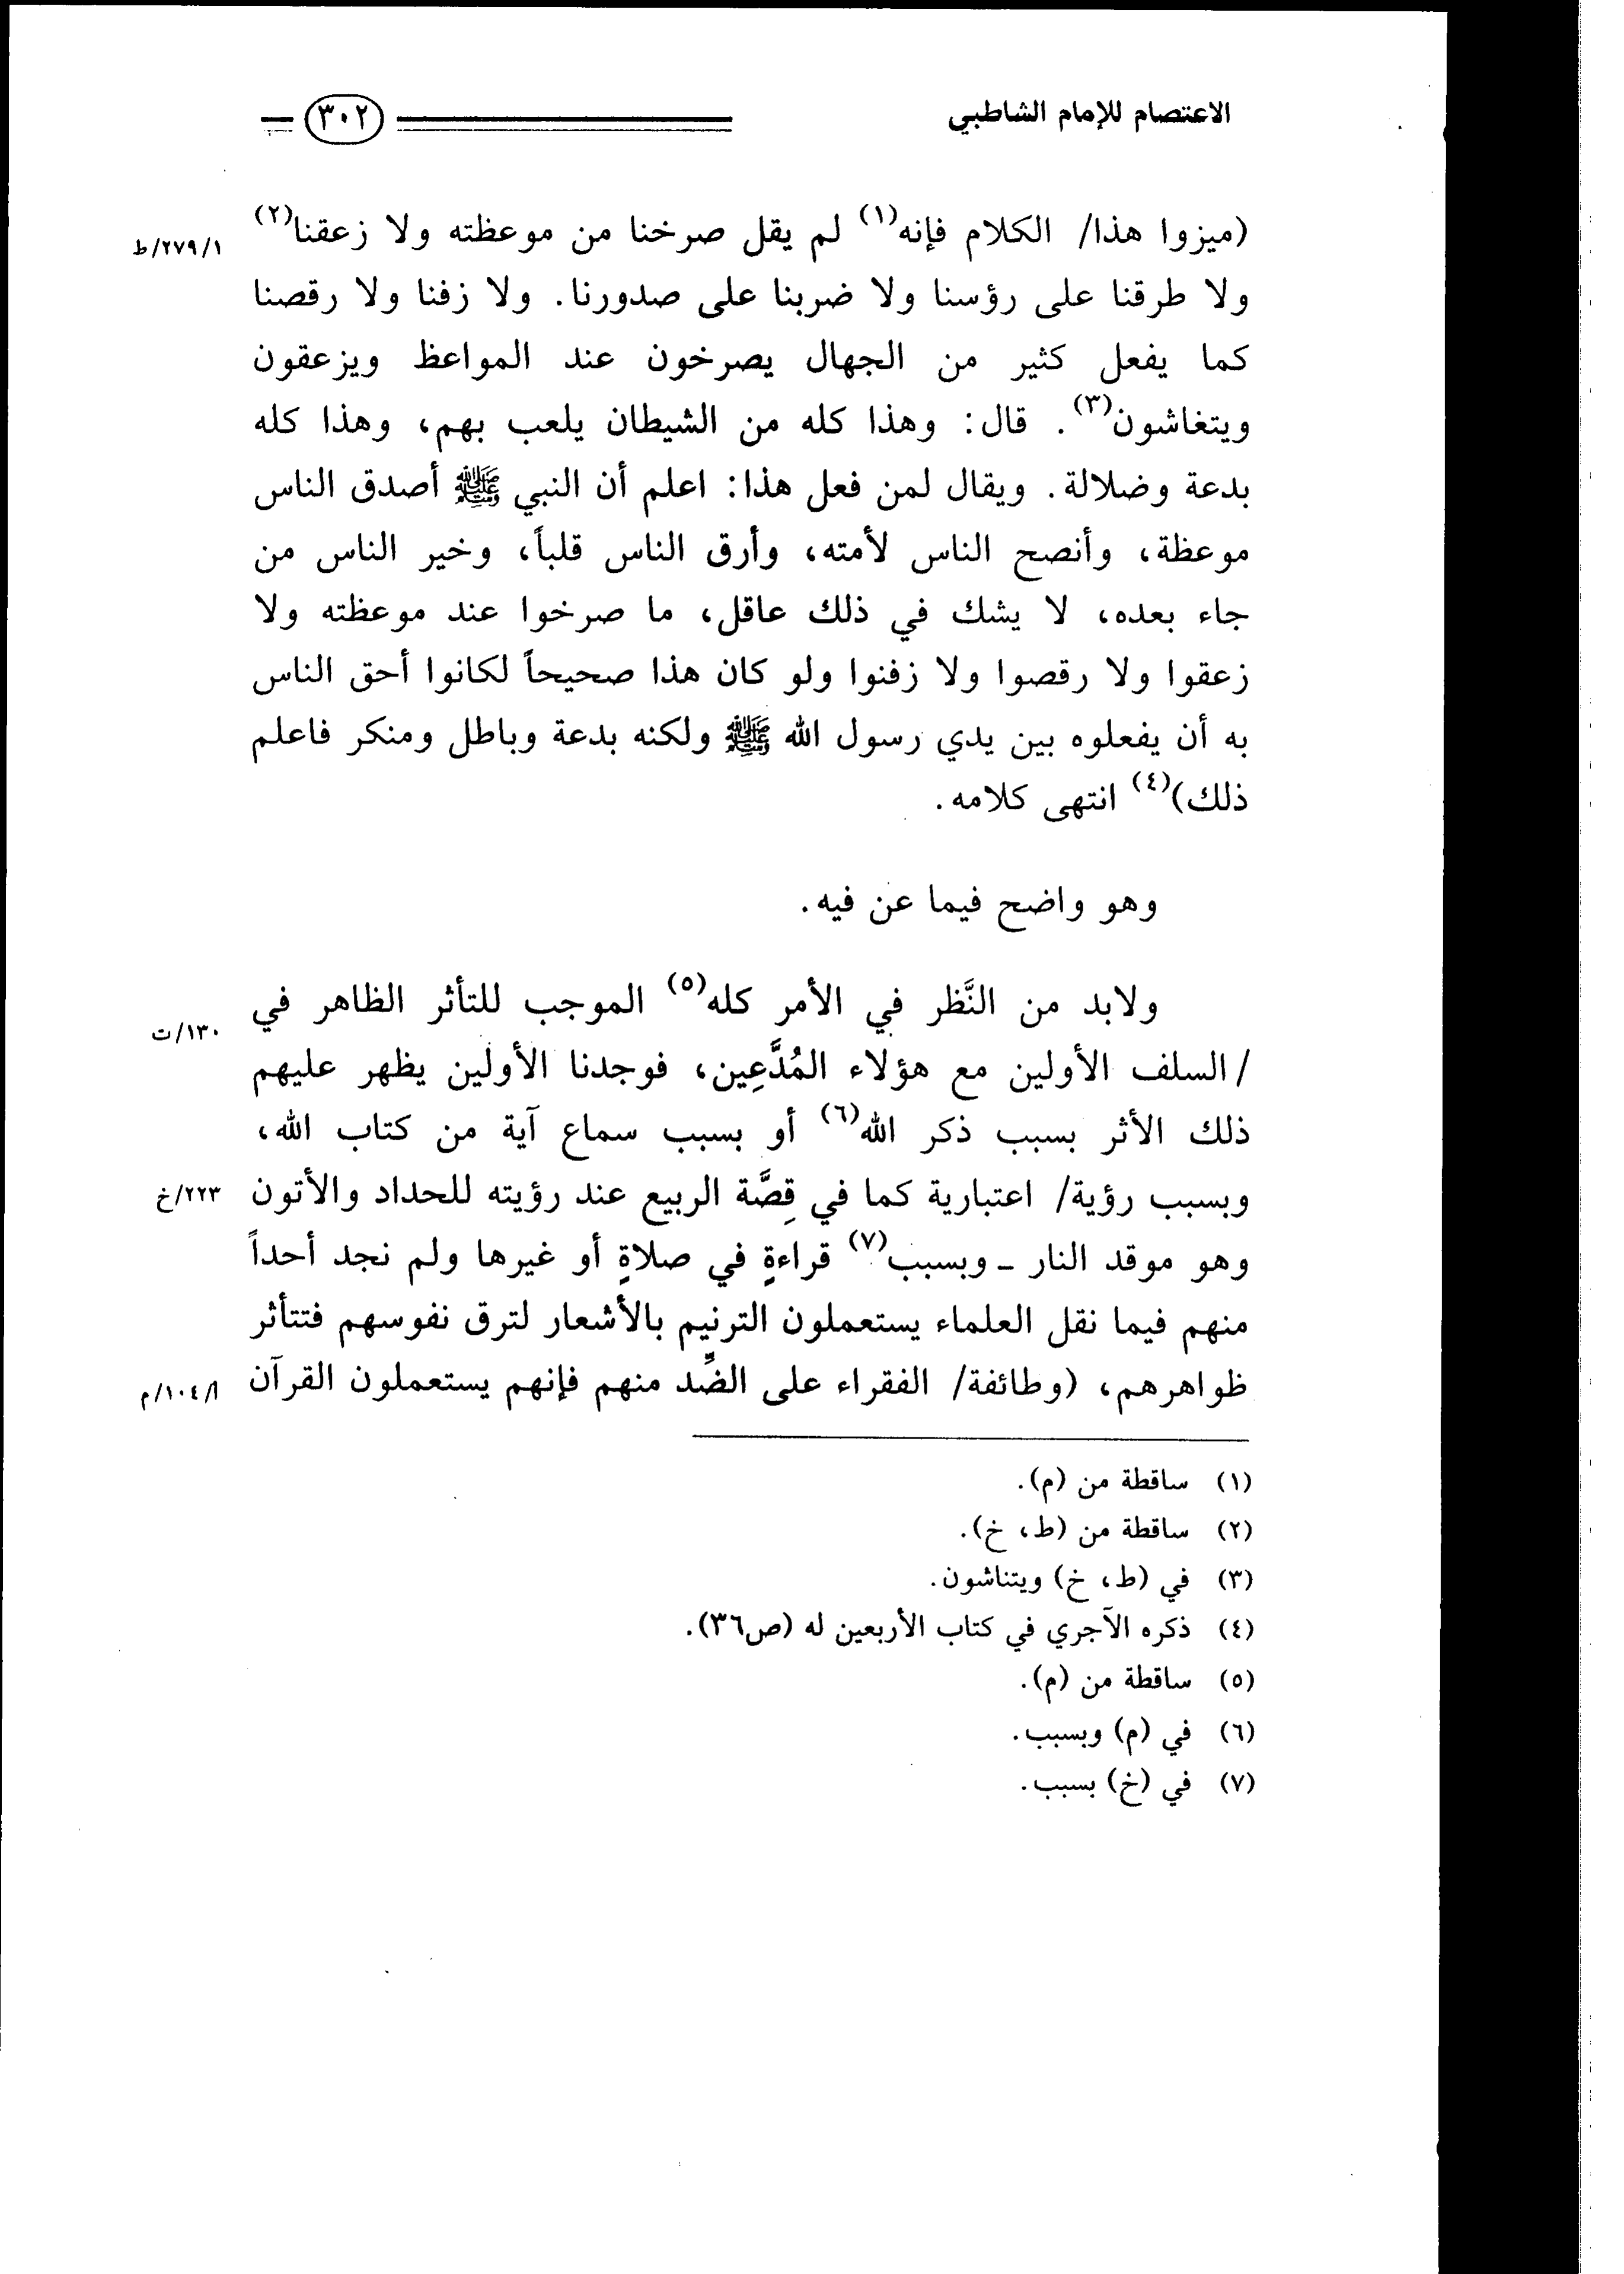 الاعتصام للإمام الشاطبي ٣٠٢
(ميزوا هذا/ الكلام فإنه(١) لم يقل صرخنا من موعظته ولا زعقنا(٢)
٢٧٩/١/ط
ولا طرقنا على رؤسنا ولا ضربنا على صدورنا. ولا زفنا ولا رقصنا
كما يفعل كثير من الجهال يصرخون عند المواعظ ويزعقون
ويتغاشون(٣). قال: وهذا كله من الشيطان يلعب بهم، وهذا كله
بدعة وضلالة. ويقال لمن فعل هذا: اعلم أن النبي ﷺ أصدق الناس
موعظة، وأنصح الناس لأمته، وأرق الناس قلباً، وخير الناس من
جاء بعده، لا يشك في ذلك عاقل، ما صرخوا عند موعظته ولا
زعقوا ولا رقصوا ولا زفنوا ولو كان هذا صحيحاً لكانوا أحق الناس
به أن يفعلوه بين يدي رسول الله ﷺ ولكنه بدعة وباطل ومنكر فاعلم
ذلك)(٤) انتهى كلامه.
وهو واضح فيما عن فيه.
ولابد من النَّظر في الأمر كله(٥) الموجب للتأثر الظاهر في
١٣٠/ت
/السلف الأولين مع هؤلاء المُدَّعِين، فوجدنا الأولين يظهر عليهم
ذلك الأثر بسبب ذكر الله(٦) أو بسبب سماع آية من كتاب الله،
وبسبب رؤية/ اعتبارية كما في قِصَّة الربيع عند رؤيته للحداد والأتون
٢٢٣/خ
وهو موقد النار ـ وبسبب(٧) قراءةٍ في صلاةٍ أو غيرها ولم نجد أحداً
منهم فيما نقل العلماء يستعملون الترنيم بالأشعار لترق نفوسهم فتتأثر
ظواهرهم، (وطائفة/ الفقراء على الضِّد منهم فإنهم يستعملون القرآن
أ/١٠٤/م
(١) ساقطة من (م).
(٢) ساقطة من (ط، خ).
(٣) في (ط، خ) ويتناشون.
(٤) ذكره الآجري في كتاب الأربعين له (ص٣٦).
(٥) ساقطة من (م).
(٦) في (م) وبسبب.
(٧) في (خ) بسبب.